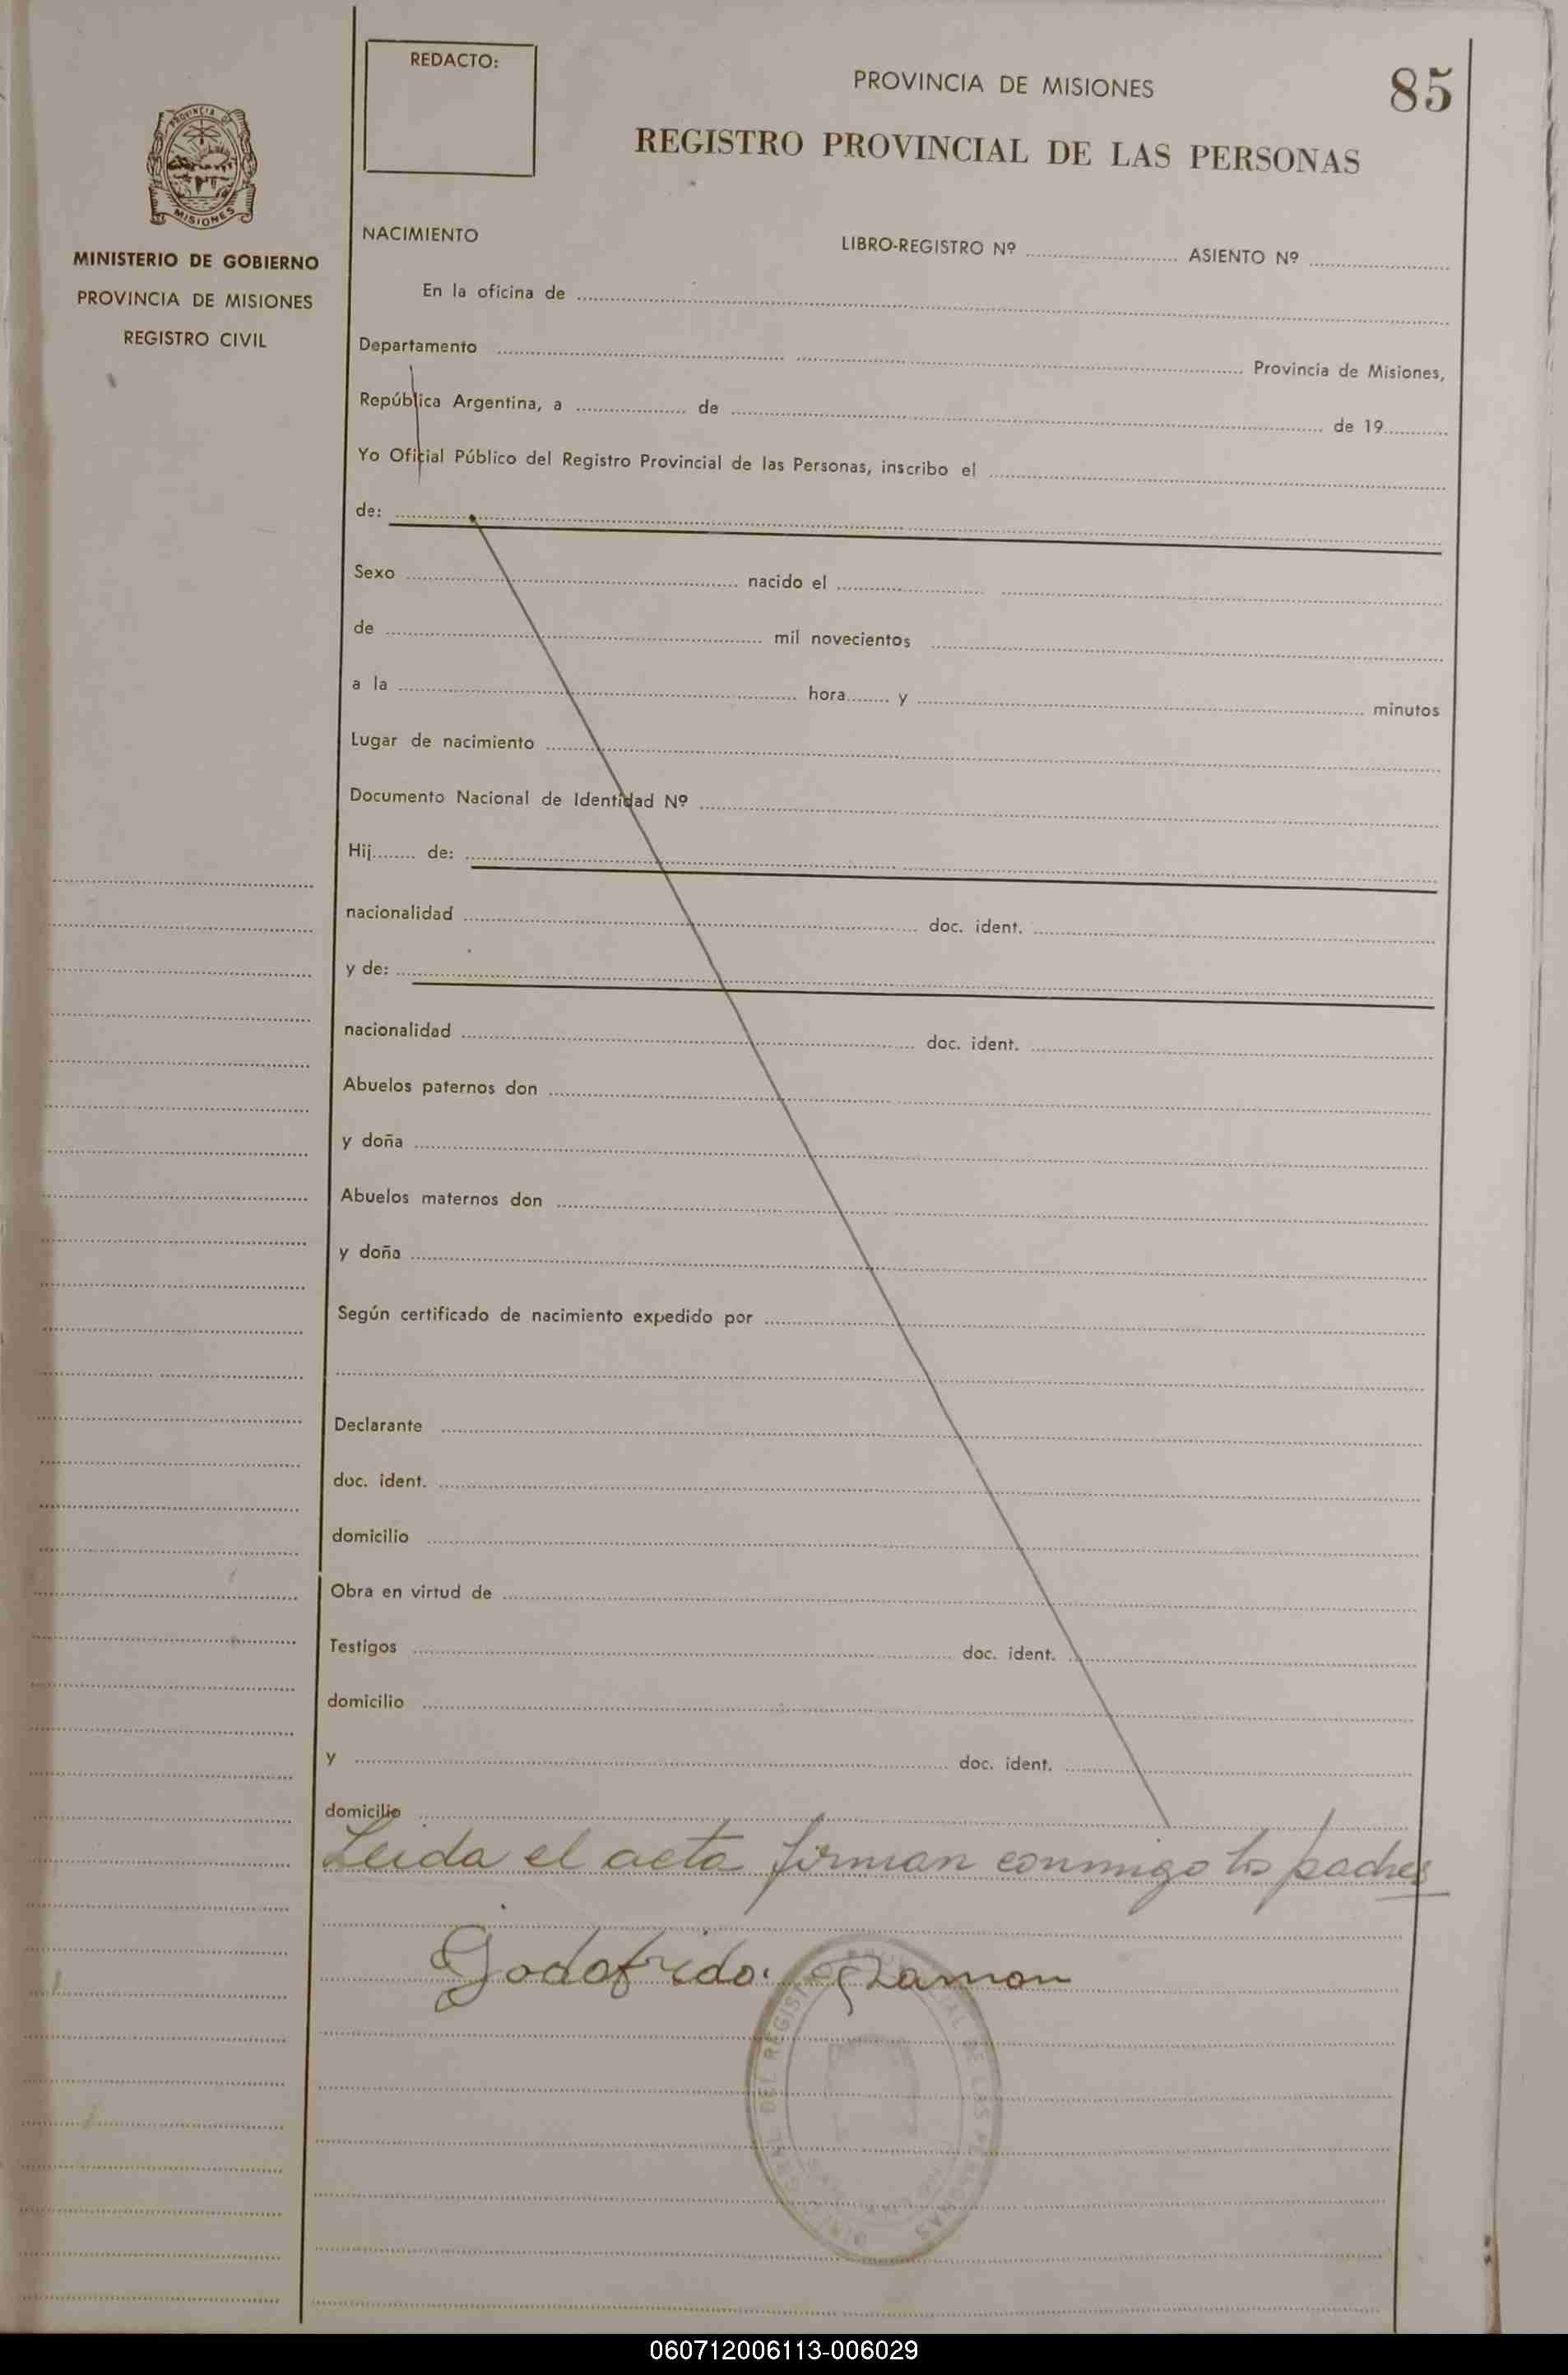 REDACTO:
PROVINCIA DE MISIONES
85
REGISTRO PROVINCIAL DE LAS PERSONAS
PROVINCIA DE
MISIONES
MINISTERIO DE GOBIERNO
PROVINCIA DE MISIONES
REGISTRO CIVIL
NACIMIENTO
LIBRO-REGISTRO Nº ASIENTO Nº
En la oficina de
Departamento Provincia de Misiones,
República Argentina, a de de 19
Yo Oficial Público del Registro Provincial de las Personas, inscribo el
de:
Sexo nacido el
de mil novecientos
a la hora y minutos
Lugar de nacimiento
Documento Nacional de Identidad Nº
Hij de:
nacionalidad doc. ident.
y de:
nacionalidad doc. ident.
Abuelos paternos don
y doña
Abuelos maternos don
y doña
Según certificado de nacimiento expedido por
Declarante
doc. ident.
domicilio
Obra en virtud de
Testigos doc. ident.
domicilio
y doc. ident.
domicilio
Leida el acta firman conmigo los padres
Godofrido. Ramon
DEL REGISTRO PROVINCIAL DE LAS PERSONAS
060712006113-006029